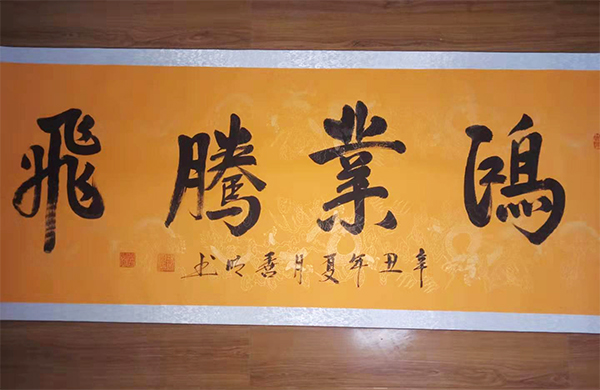 鴻業騰飛
辛丑年夏月善明书